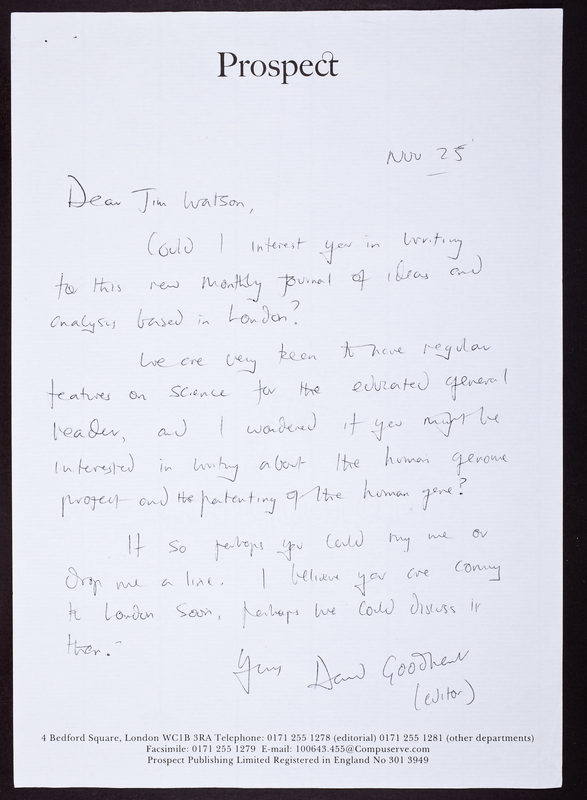 Prospect
Nov 25
Dear Jim Watson,
Could I interest you in writing
for this new monthly journal of ideas and
analysis based in London?
We are very keen to have regular
features on science for the educated general
reader, and I wondered if you might be
interested in writing about the human genome
project and the patenting of the human gene?
If so perhaps you could ring me or
drop me a line. I believe you are coming
to London soon, perhaps we could discuss it
then.
Yours David Goodhart
(editor)
4 Bedford Square, London WC1B 3RA Telephone: 0171 255 1278 (editorial) 0171 255 1281 (other departments)
Facsimile: 0171 255 1279 E-mail: 100643.455@Compuserve.com
Prospect Publishing Limited Registered in England No 301 3949